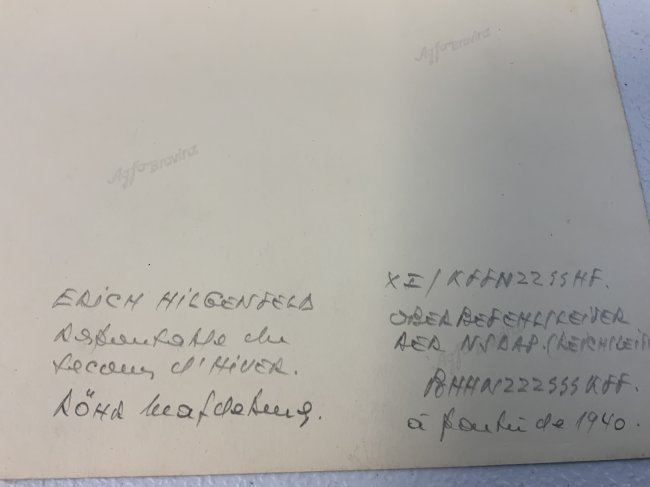 Agfa Brovira
Agfa Brovira
ERICH HILGENFELD
Responsable du
secours d'HIVER.
Magdeburg.
XI/KFFNZZSSHF.
OBERBEFEHLSLEITER
DER NSDAP. (REICHSLEIT
à partir de 1940.